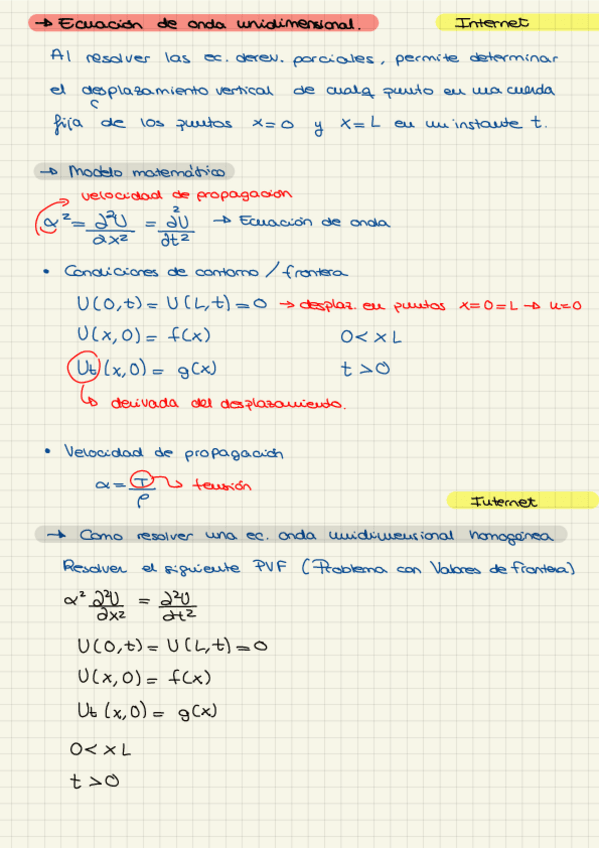 → Ecuación de onda unidimensional. Internet
Al resolver las ec. derev. parciales, permite determinar
el desplazamiento vertical de cualq punto en una cuerda
fija de los puntos x=0 y x=L en un instante t.
→ Modelo matemático
velocidad de propagación
α² = ∂²U/∂x² = ∂²U/∂t² → Ecuación de onda
• Condiciones de contorno / frontera
U(0,t) = U(L,t) = 0 → desplaz. en puntos x=0=L → u=0
U(x,0) = f(x) 0< x L
Ut (x,0) = g(x) t >0
↳ derivada del desplazamiento.
• Velocidad de propagación
α = T/ρ → tensión
Internet
→ Como resolver una ec. onda unidimensional homogénea
Resolver el siguiente PVF (Problema con Valores de frontera)
α² ∂²U/∂x² = ∂²U/∂t²
U(0,t) = U(L,t) = 0
U(x,0) = f(x)
Ut (x,0) = g(x)
0< x L
t >0